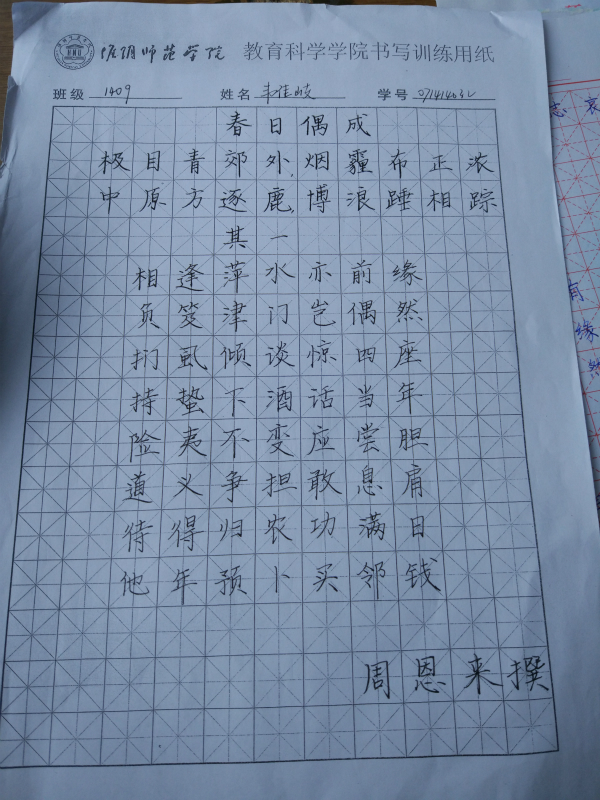 绵阳师范学院 教育科学学院书写训练用纸
班级 1409 姓名 学号
春日偶成
极目青郊外,烟霾布正浓
中原方逐鹿,博浪踵相踪
其一
相逢萍水亦前缘
负笈津门岂偶然
扪虱倾谈惊四座
持蛰下酒话当年
险夷不变应尝胆
道义争担敢息肩
待得归农功满日
他年预卜买邻钱
周恩来撰
缘